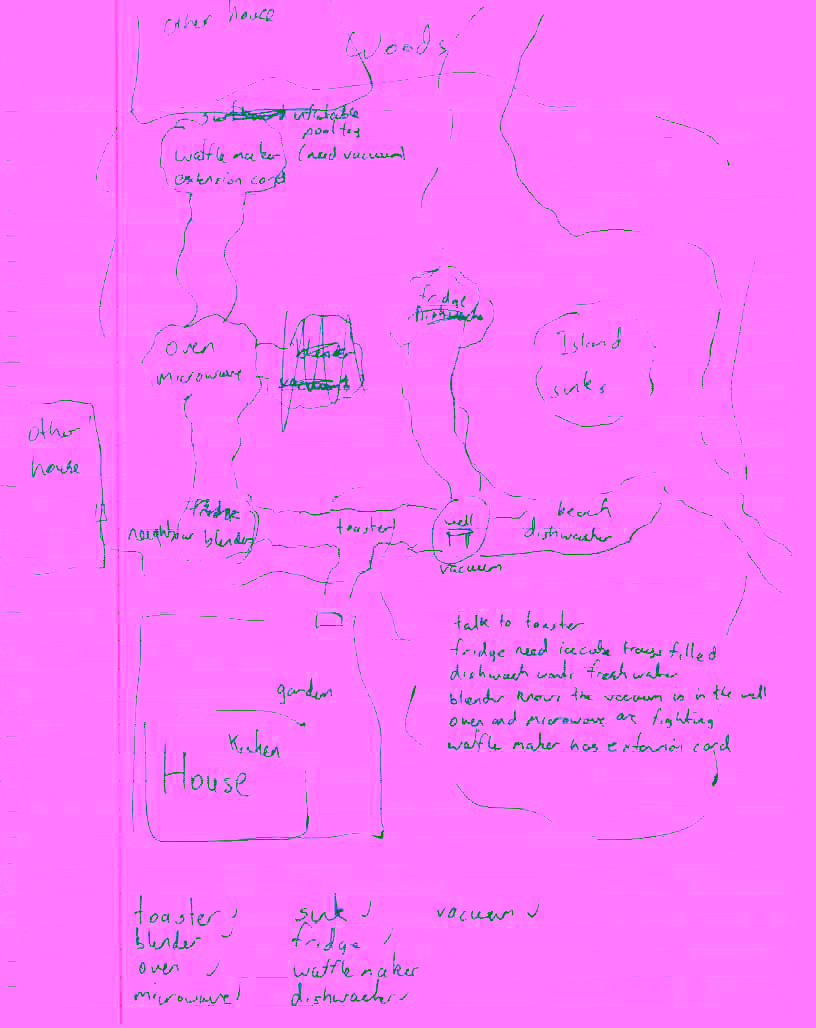 other house
Woods
inflatable
pool toy
waffle maker (need vacuum)
extension cord
fridge
oven
microwave
blender
vacuum
Island
sinks
other
house
fridge
neighbour blender
toaster
well
beach
dishwasher
vacuum
talk to toaster
fridge need icecube trays filled
dishwash wants freshwater
blender knows the vacuum is in the well
oven and microwave are fighting
waffle maker has extension cord
garden
Kitchen
House
toaster ✓ sink ✓ vacuum ✓
blender ✓ fridge ✓
oven ✓ waffle maker
microwave ✓ dishwasher ✓